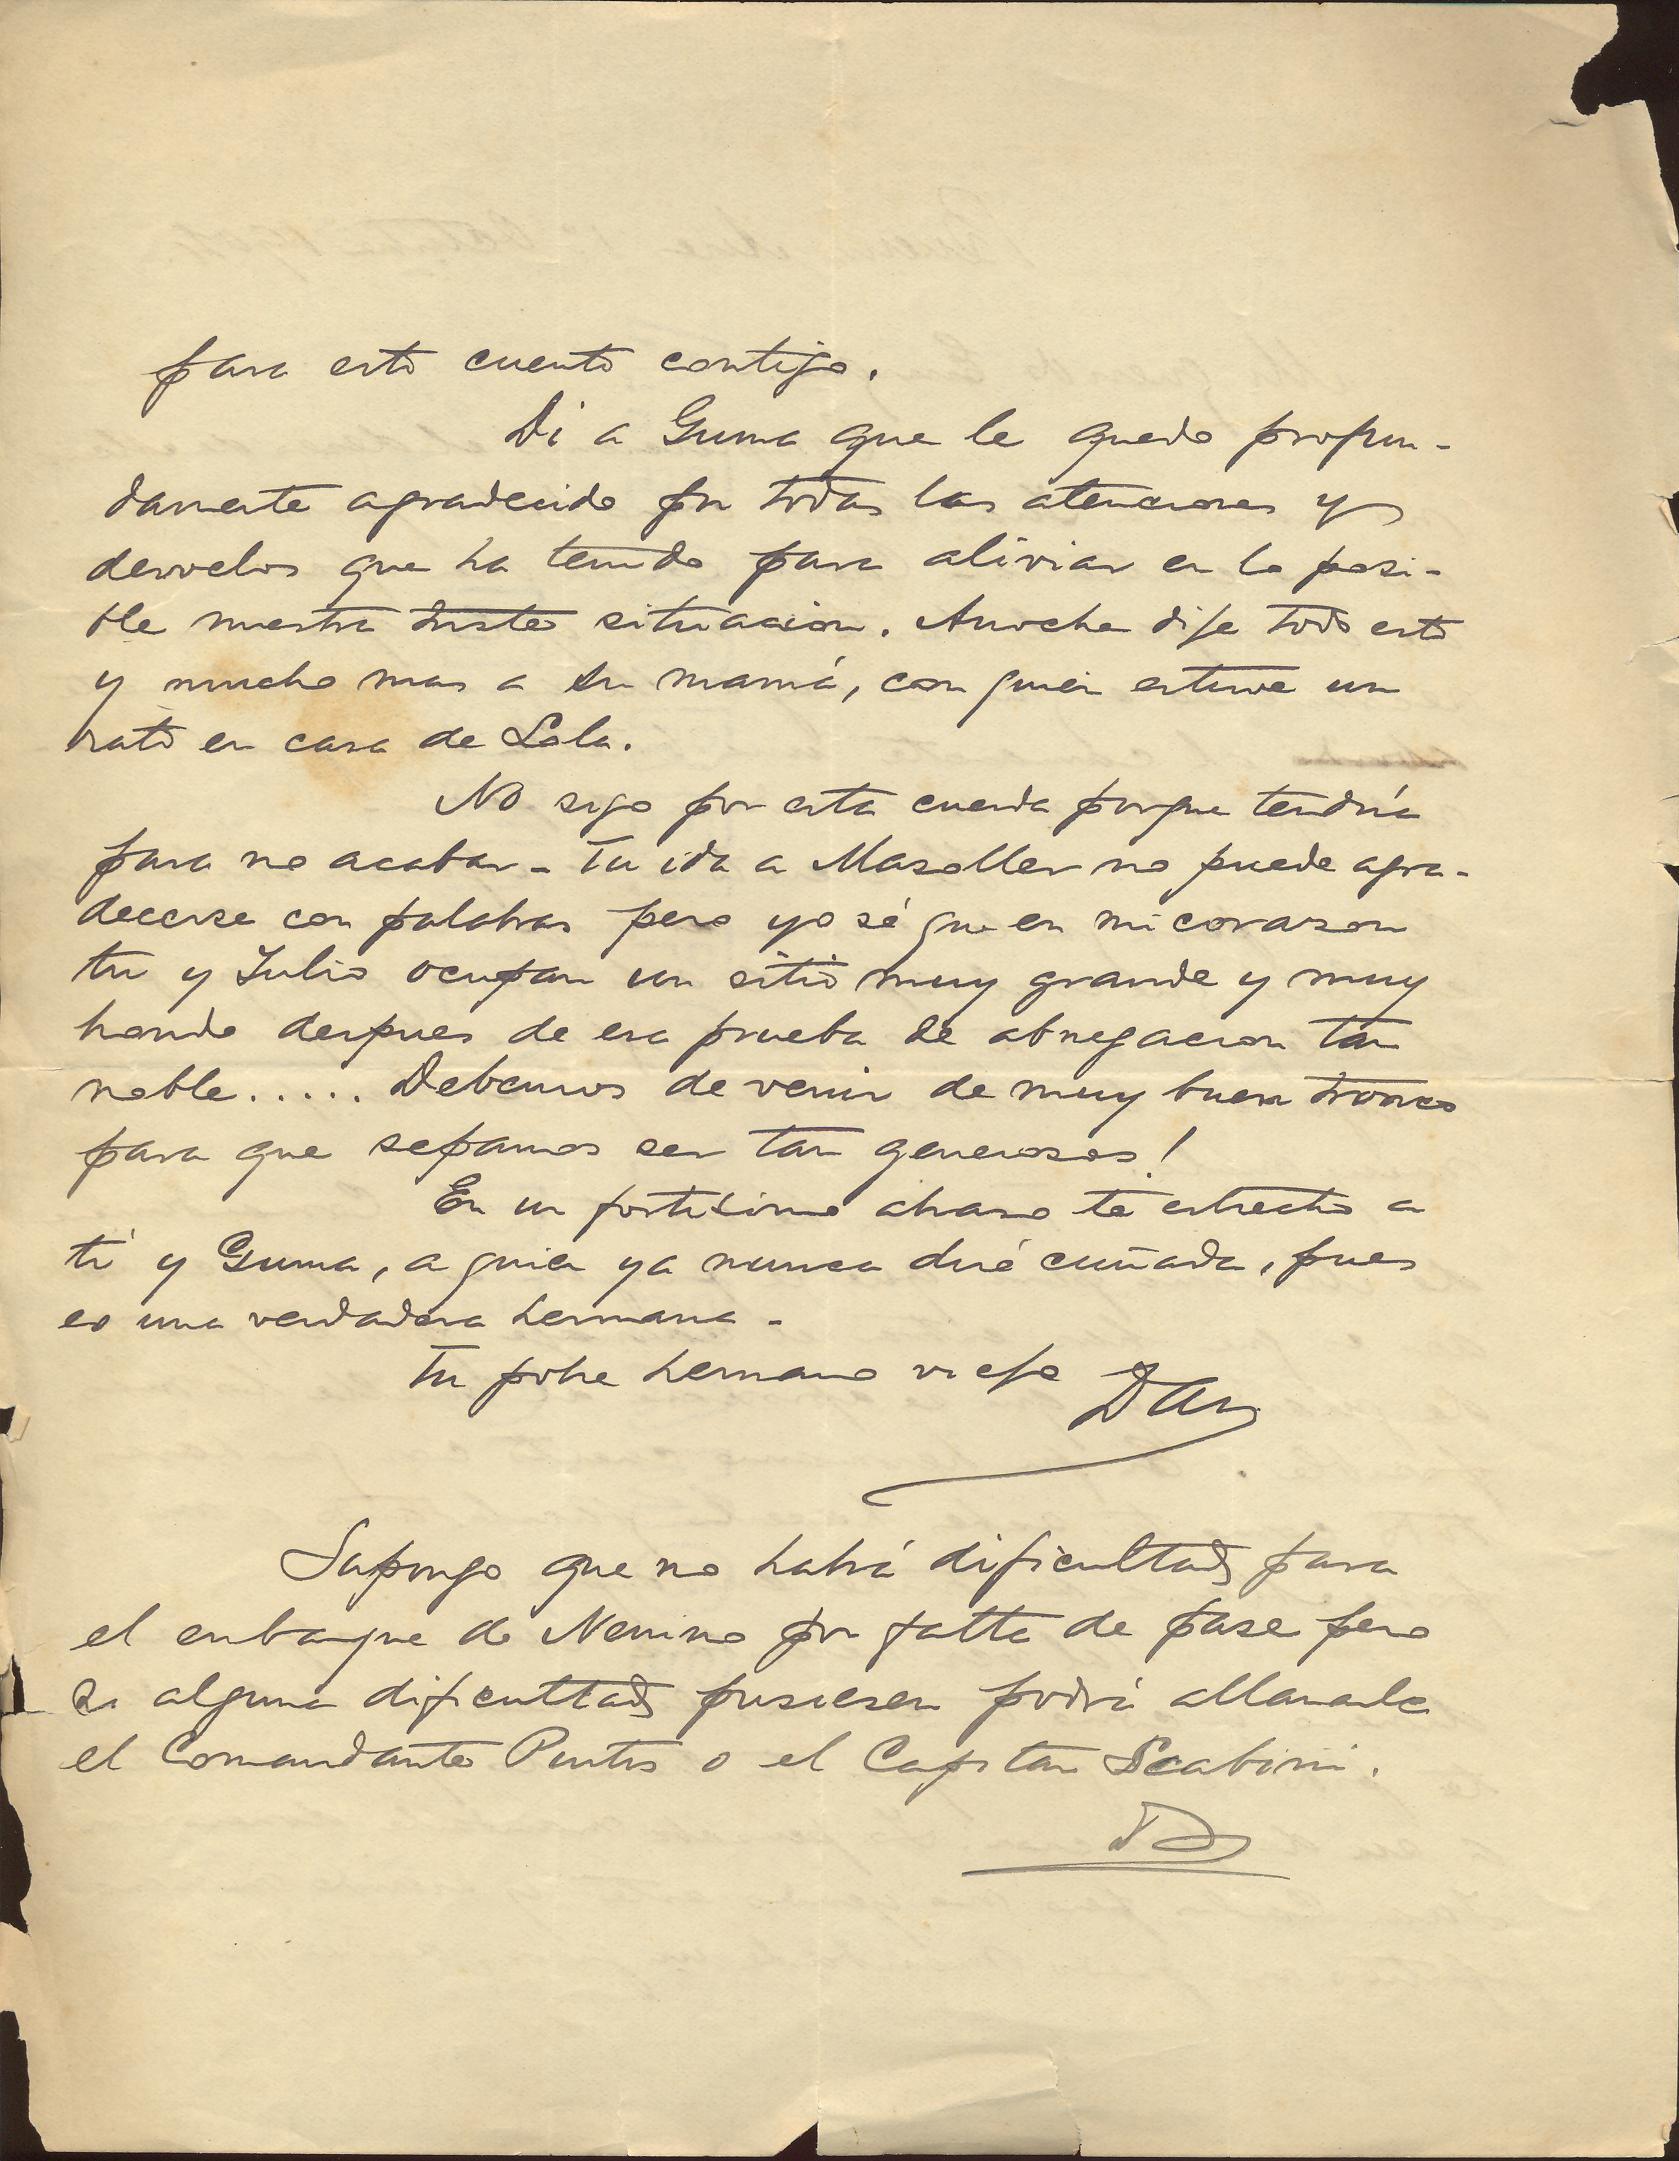 para esto cuento contigo.
Di a Guma que le quedo profun-
damente agradecido por todas las atenciones y
desvelos que ha tenido para aliviar en lo posi-
ble nuestra triste situacion. Anoche dije todo esto
y mucho mas a su mamá, con quien estuve un
rato en casa de Lola.
No sigo por esta cuerda porque tendría
para no acabar - Tu ida a Masoller no puede agra-
decerse con palabras pero yo sé que en mi corazon
tu y Julio ocupan un sitio muy grande y muy
hondo despues de esa prueba de abnegacion tan
noble ..... Debemos de venir de muy buen tronco
para que sepamos ser tan generosos!
En un fortisimo abrazo te estrecho a
ti y Guma, a quien ya nunca diré cuñada, pues
es una verdadera hermana -
Tu pobre hermano viejo Dan
Supongo que no habrá dificultad para
el embarque de Nenino por falta de pase pero
si alguna dificultad pusiesen podrá allanarla
el Comandante Pintos o el Capitan Scabini.
D